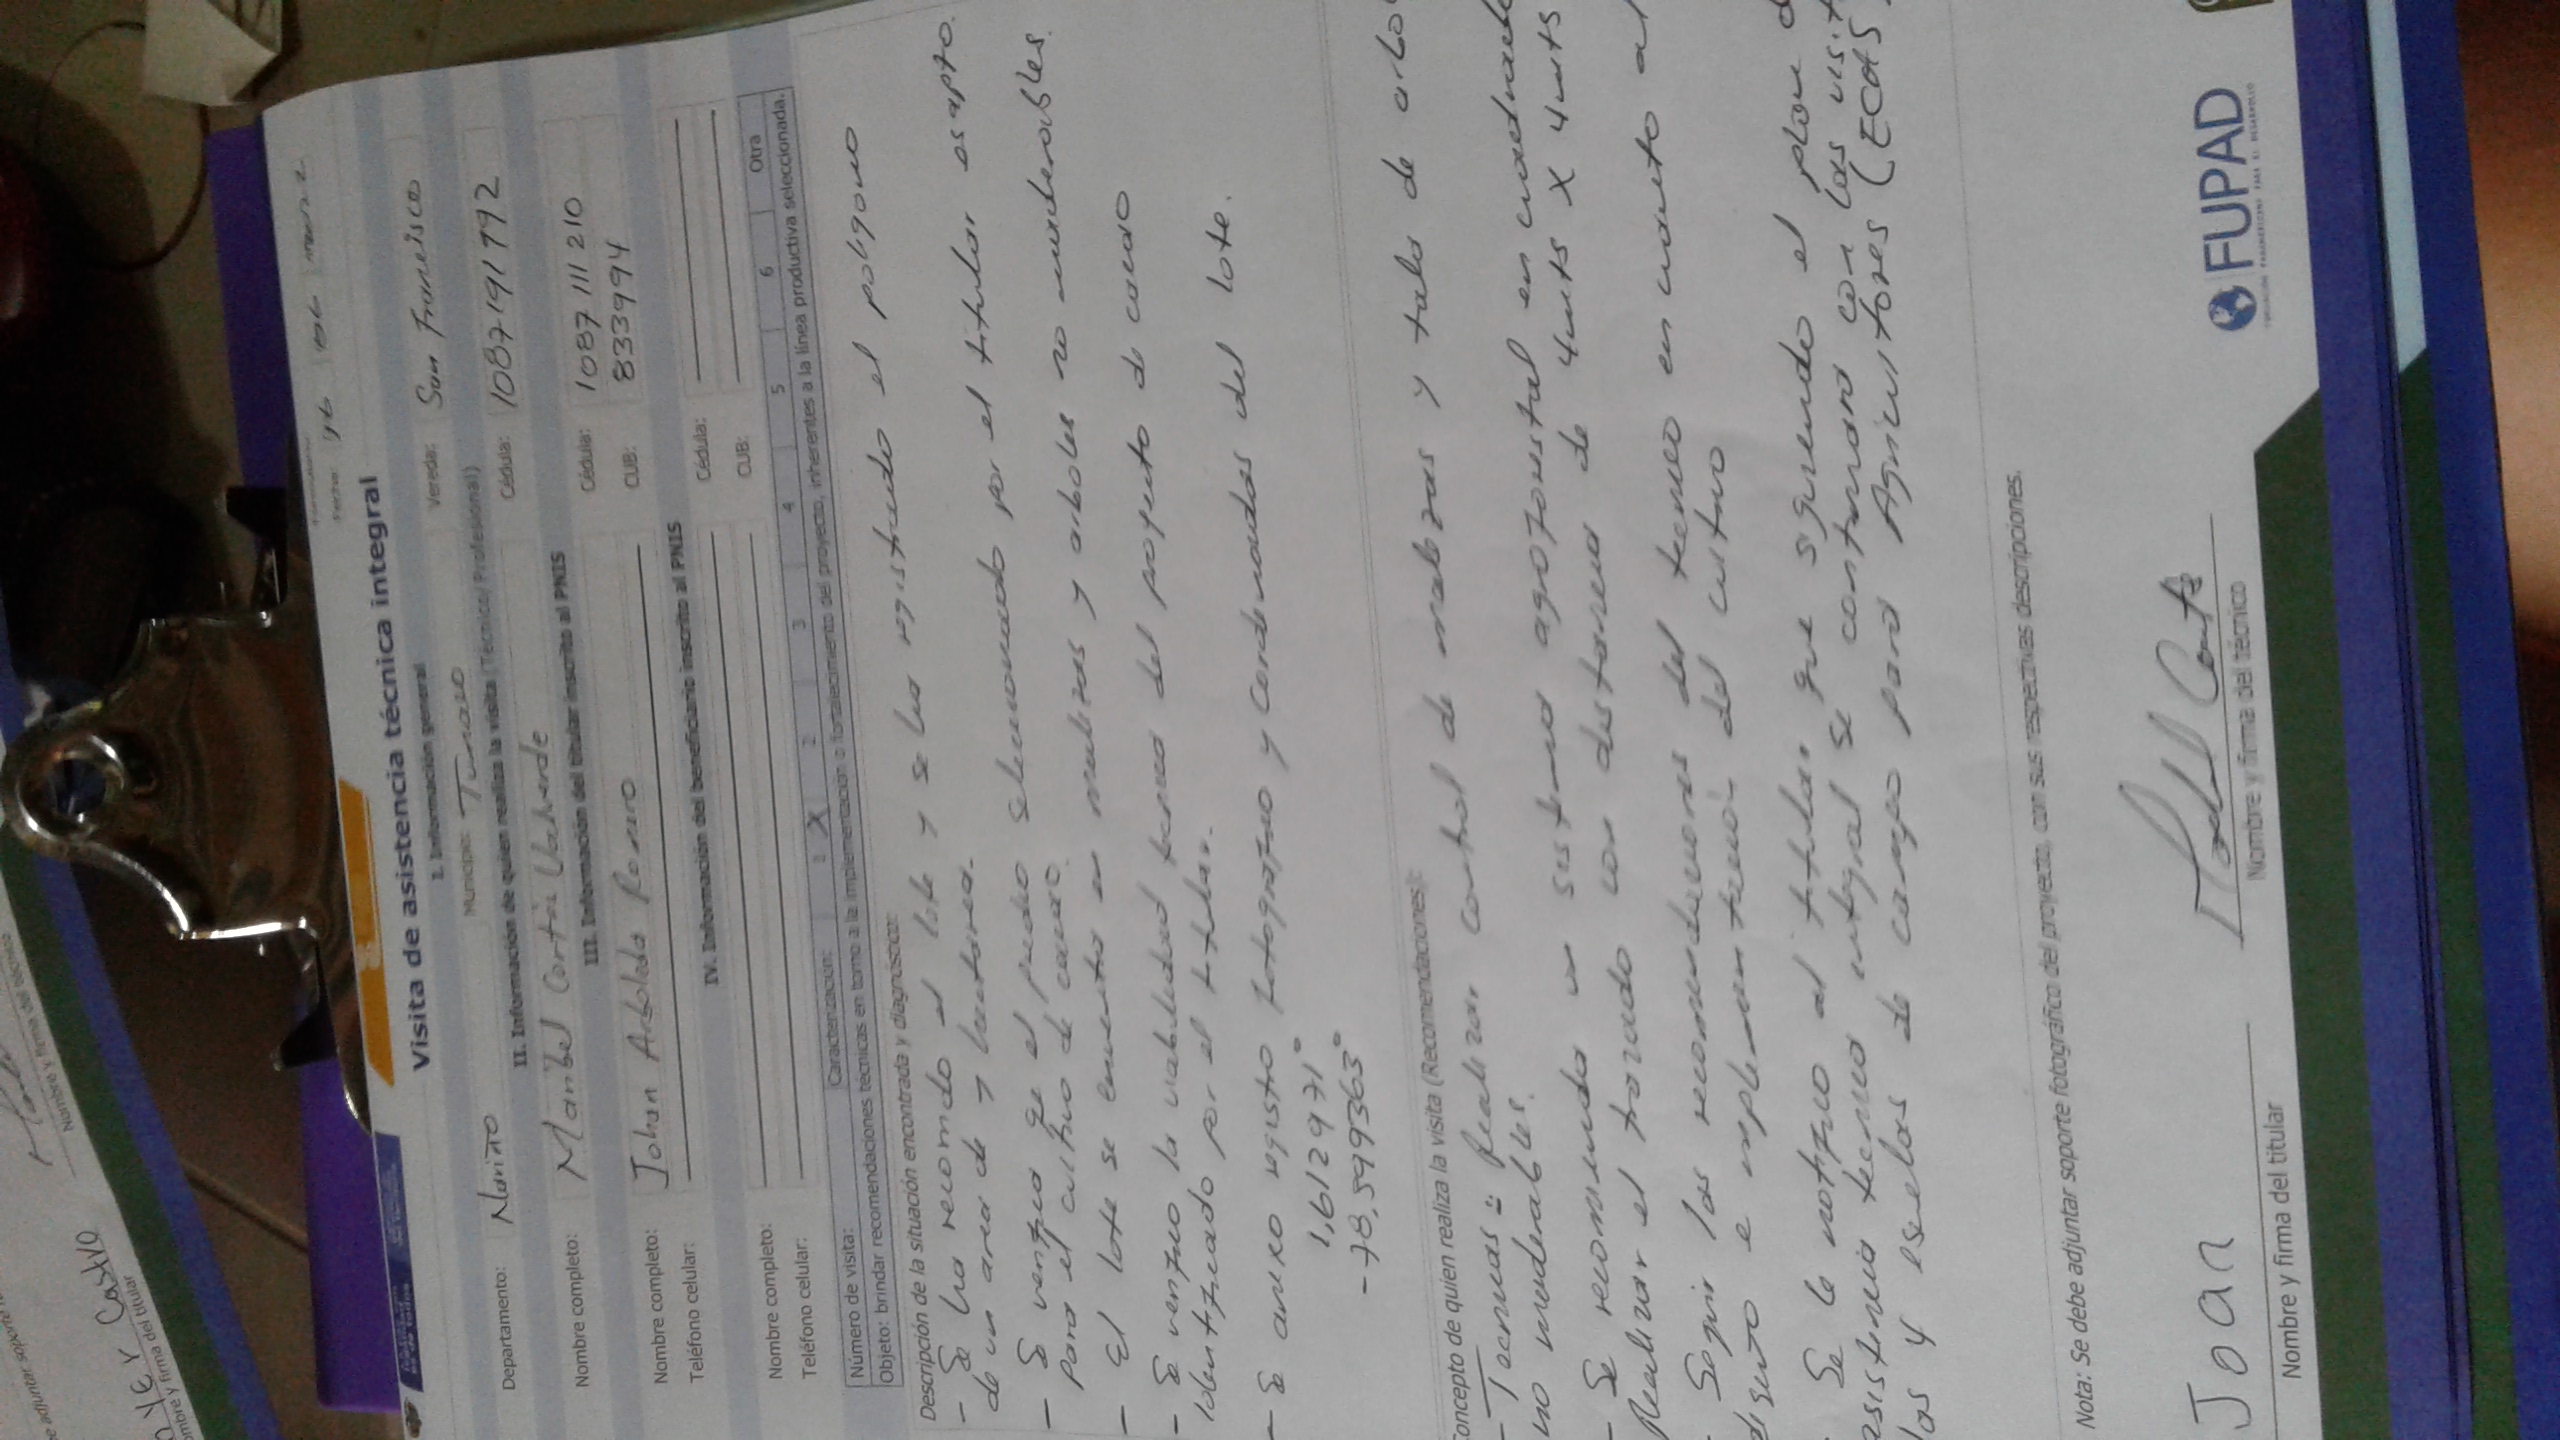 Visita de asistencia técnica integral
Fecha:
I. Información general
Departamento: Nariño Municipio: Tumaco Vereda: San Francisco
II. Información de quien realiza la visita (Técnico/Profesional)
Nombre completo: Maribel Cortés Valverde Cédula: 1087191792
III. Información del titular inscrito al PNIS
Nombre completo: Johan Arboleda Romo Cédula: 1087111210
Teléfono celular: CUB: 833994
IV. Información del beneficiario inscrito al PNIS
Nombre completo: Cédula:
Teléfono celular: CUB:
Número de visita: Caracterización: 1 X 2 3 4 5 6 Otra
Objeto: brindar recomendaciones técnicas en torno a la implementación o fortalecimiento del proyecto, inherentes a la línea productiva seleccionada.
Descripción de la situación encontrada y diagnóstico:
- Se ha recorrido el lote y se ha registrado el poligono
de un area de y hectarea.
- Se verifica qe el predio seleccionado por el titular es apto
para el cultivo de cacao.
- El lote se encuentra en malezas y arboles no maderables.
- Se verifico la viabilidad tecnica del proyecto de cacao
identificado por el titular.
- Se anexo registro fotografico y cordenadas del lote.
1,612971°
-78,599363°
Concepto de quien realiza la visita (Recomendaciones):
- Tecnicas = Realizar control de malezas y tala de arbo
no maderables.
- Se recomienda un sistema agroforestal en cuadrado
Realizar el trazado con distancia de 4mts X 4mts
- Seguir las recomendaciones del tecnico en cuanto al
diseño e implementación del cultivo
Se le notifico al titular que siguiendo el plan d
asistencia tecnica integral se continuara con las visit
las y escuelas de campo para Agricultores (ECAS)
Nota: Se debe adjuntar soporte fotográfico del proyecto, con sus respectivas descripciones.
Joan
Nombre y firma del titular
Nombre y firma del técnico
FUPAD
FUNDACIÓN PANAMERICANA PARA EL DESARROLLO
Castro
Nombre y firma del titular
Nombre y firma del técnico